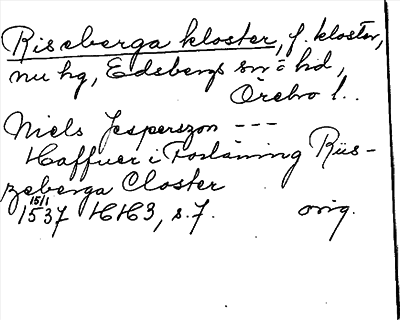 Riseberga kloster, f. kloster,
nu hg, Edsbergs sn o hd,
Örebro l..
Niels Jesperszon ---
Haffuer i Forläning Riis-
zeberga Closter
15/1
1537 HH3, s. 7. orig.